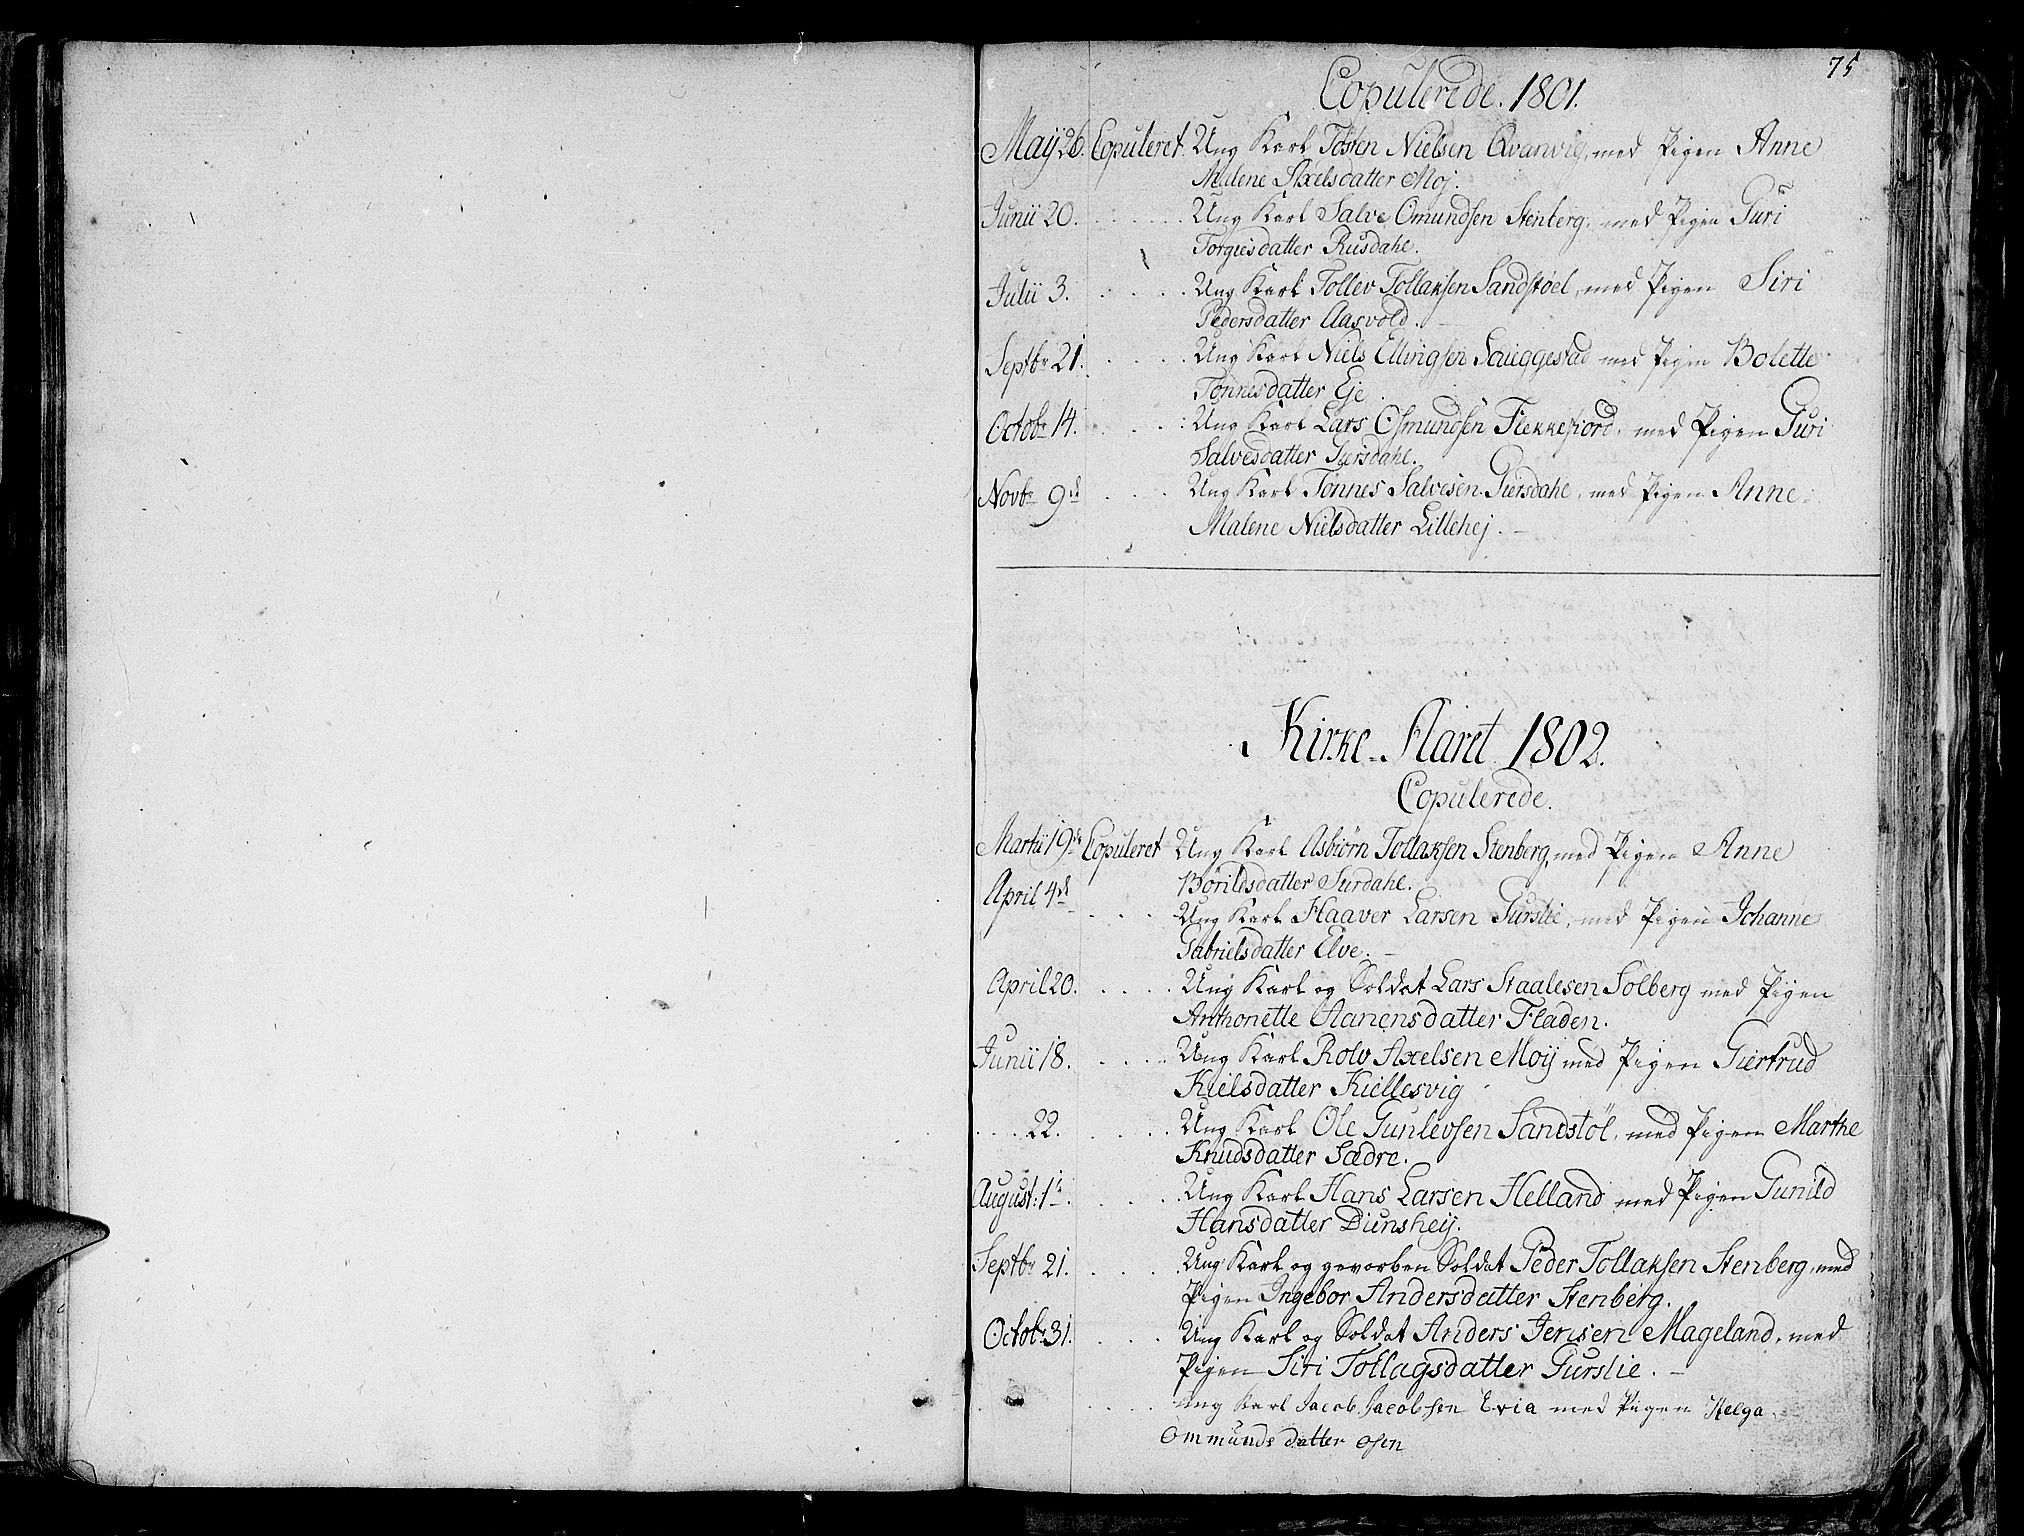 75
Copulerede. 1801.
May 26. Copuleret. Ung Karl Tosten Nielsen Qvanvig, med Pigen Anne
Malene Axelsdatter Moj.
Junii 20. . . . . . Ung Karl Salve Omundsen Stenberg, med Pigen Guri
Torgiesdatter Rusdahl.
Julii 3. . . . . Ung Karl Tollev Tollaksen Sandstøel, med Pigen Siri
Pedersdatter Aasvold.
Septbr 21. . . . . Ung Karl Niels Ellingsen Skieggestad med Pigen Bolette
Tønnesdatter Eje.
Octobr 14. . . . Ung Karl Lars Osmundsen Flekkefiord, med Pigen Guri
Salvesdatter Giersdahl.
Novbr 9d . . . . Ung Karl Tønnes Salvesen Giersdahl, med Pigen Anne
Malene Nielsdatter Lillehej. —
Kirke-Aaret 1802.
Copulerede.
Martii 19d Copuleret Ung Karl Asbiørn Tollaksen Stenberg, med Pigen Anne
Børildsdatter Surdahl.
April 4d . . . . Ung Karl Haaver Larsen Gurslie, med Pigen Johanne
Gabrielsdatter Elve. —
April 20. . . . . Ung Karl og Soldat Lars Staalesen Solberg med Pigen
Anthonette Aanensdatter Fladen.
Junii 18. . . . . Ung Karl Rolv Axelsen Moij med Pigen Giertrud
Kielsdatter Kiellesvig
. . . . 22. . . . . Ung Karl Ole Gunlevsen Sandstøl, med Pigen Marthe
Knudsdatter Sædre.
August. 1d . . . . Ung Karl Hans Larsen Helland med Pigen Gunild
Hansdatter Dunsheij.
Septbr 21. . . . . Ung Karl og gevorben Soldat Peder Tollaksen Stenberg, med
Pigen Ingebor Andersdatter Stenberg.
Octobr 31. . . . Ung Karl og Soldat Anders Jensen Mageland, med
Pigen Siri Tollagsdatter Gurslie. —
. . . . Ung Karl Jacob Jacobsen Evia med Pigen Helga
Ommunds datter Osen